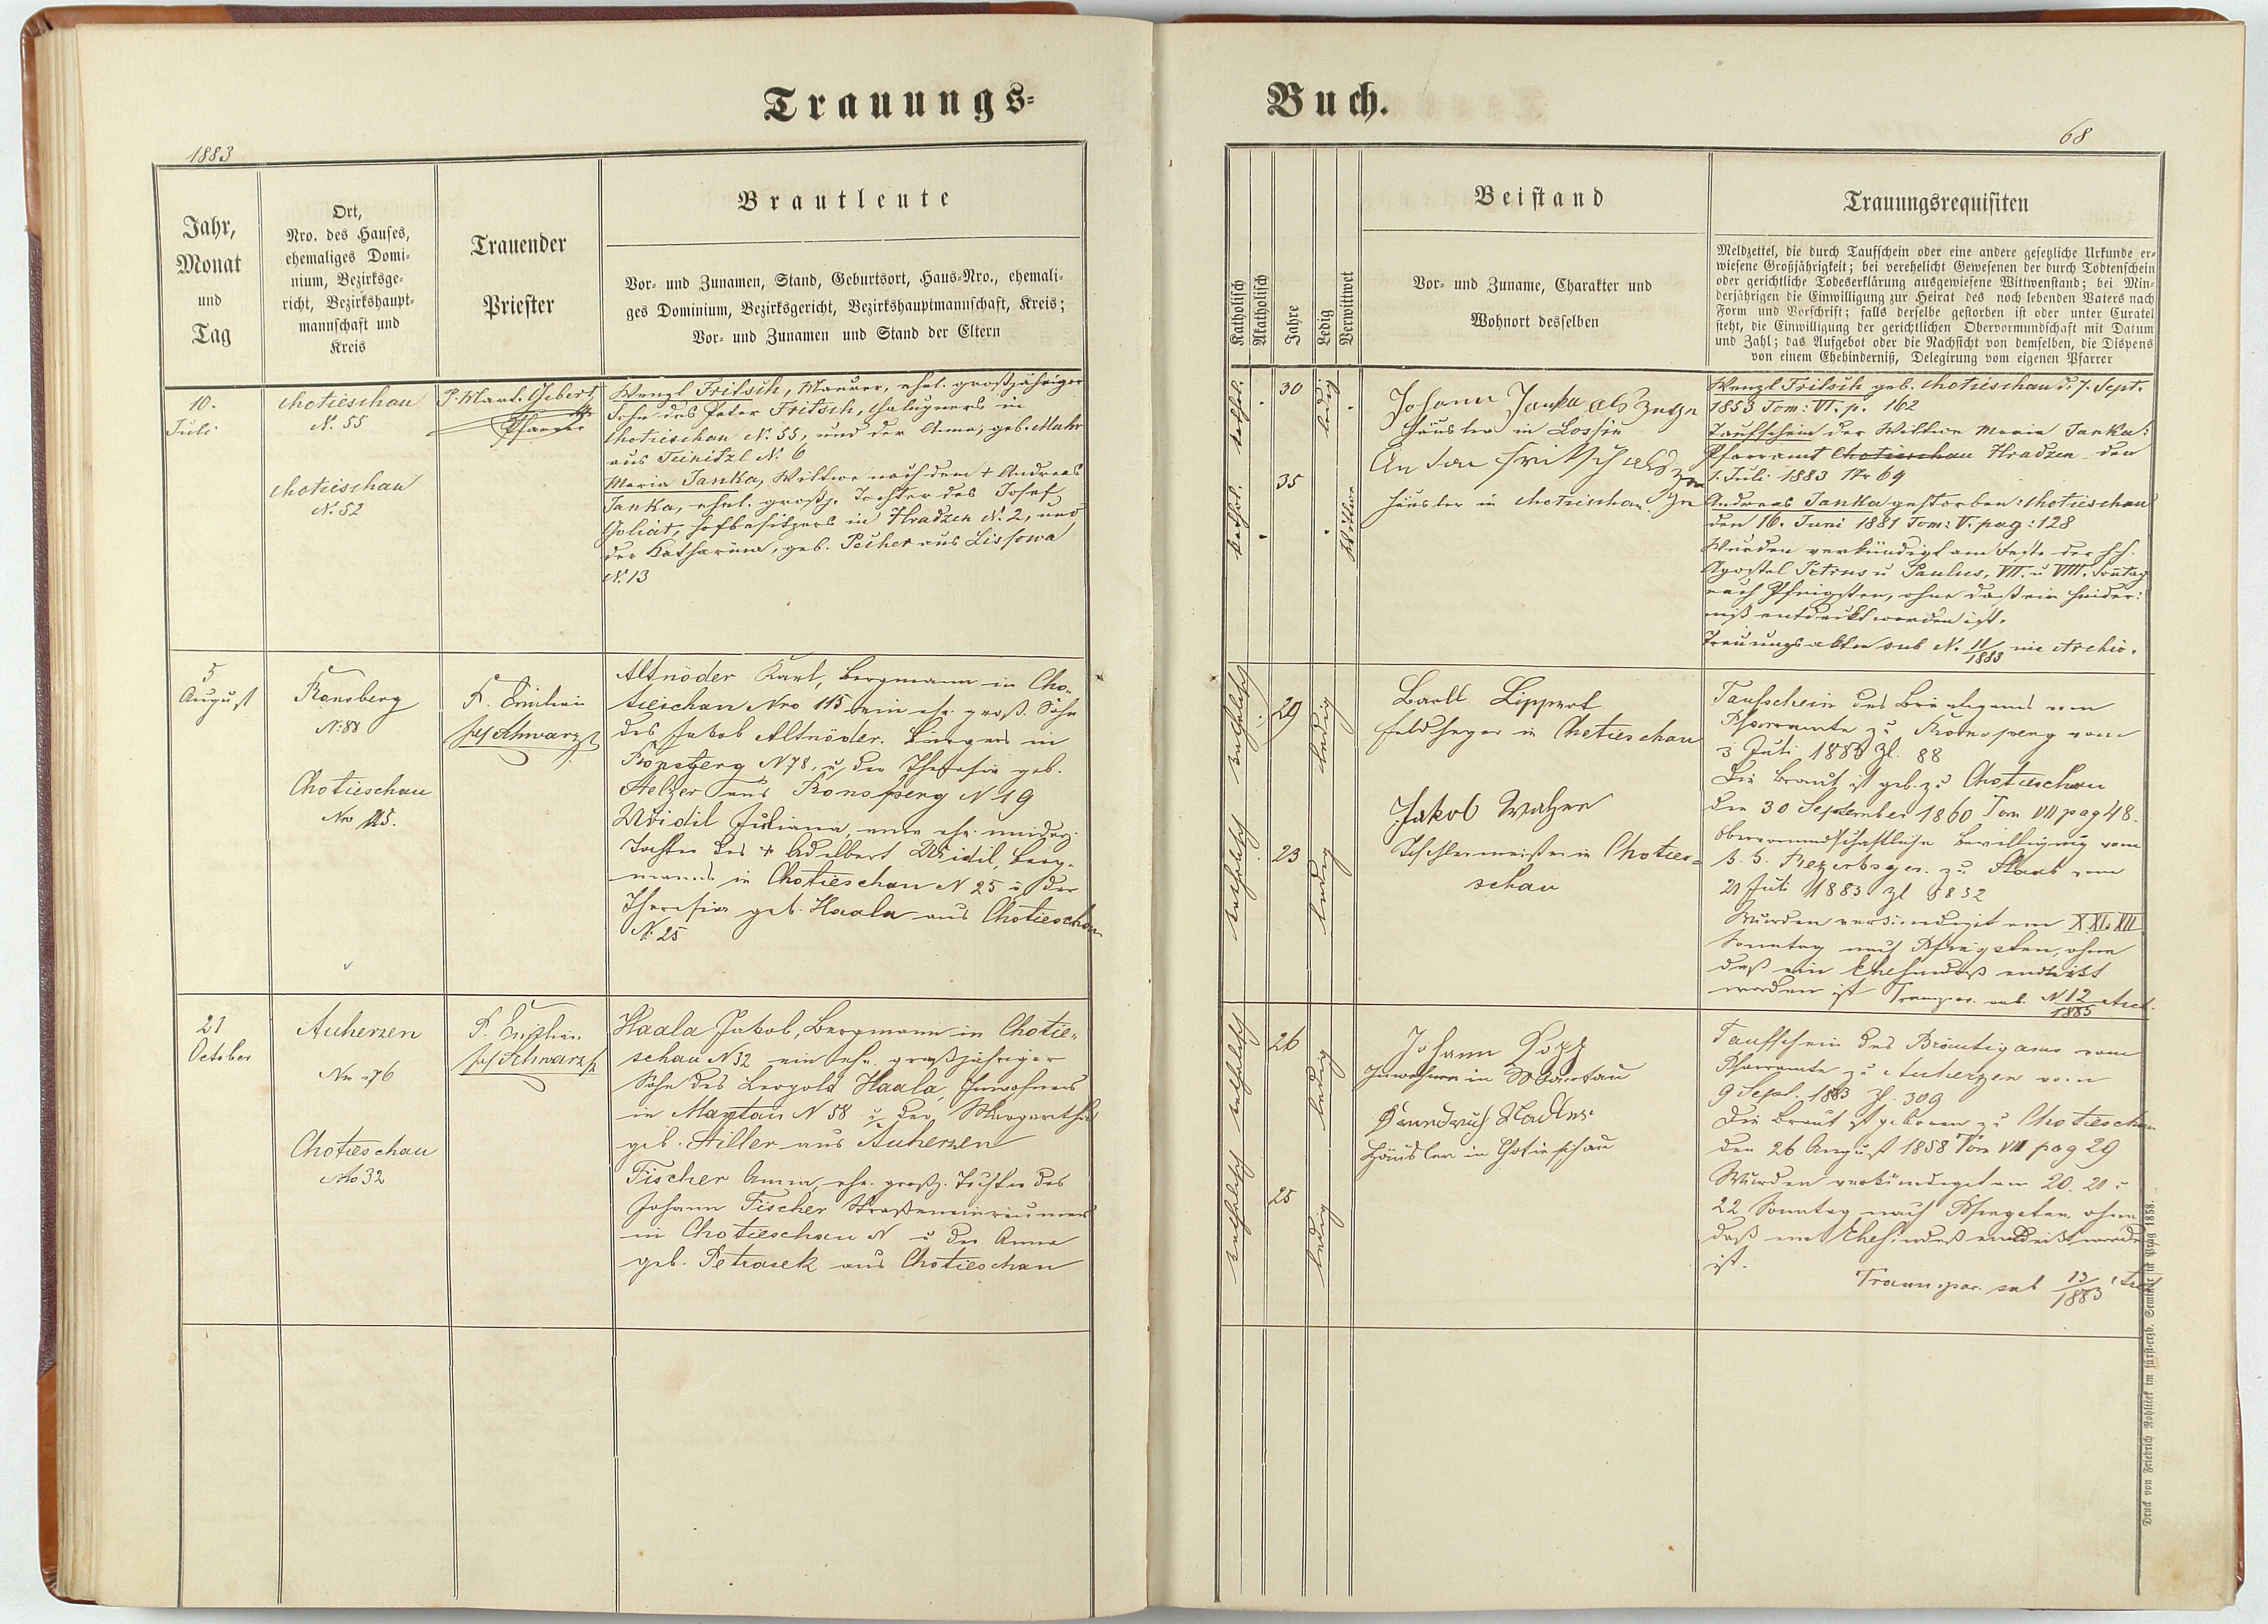 Trauungs=
Buch.
1883
68
Jahr,
Monat
und
Tag
Ort,
Nro. des Hauses,
ehemaliges Domi-
nium, Bezirksge-
richt, Bezirkshaupt-
mannschaft und
Kreis
Trauender
Priester
Brautleute
Vor- und Zunamen, Stand, Geburtsort, Haus-Nro., ehemali-
ges Dominium, Bezirksgericht, Bezirkshauptmannschaft, Kreis;
Vor- und Zunamen und Stand der Eltern
Katholisch
Akatholisch
Jahre
Ledig
Verwittwet
Beistand
Vor- und Zuname, Charakter und
Wohnort desselben
Trauungsrequisiten
Meldzettel, die durch Taufschein oder eine andere gesetzliche Urkunde er-
wiesene Großjährigkeit; bei verehelicht Gewesenen der durch Todtenschein
oder gerichtliche Todeserklärung ausgewiesene Wittwenstand; bei Min-
derjährigen die Einwilligung zur Heirat des noch lebenden Vaters nach
Form und Vorschrift; falls derselbe gestorben ist oder unter Curatel
steht, die Einwilligung der gerichtlichen Obervormundschaft mit Datum
und Zahl; das Aufgebot oder die Nachsicht von demselben, die Dispens
von einem Ehehinderniß, Delegirung vom eigenen Pfarrer
10.
Juli
Chotieschau
N. 55
Chotieschau
N. 52
P. Mart. Gebert
Pfarrer
Wenzl Fritsch, Maurer, ehel. großjähriger
Sohn des Peter Fritsch, Chalupners in
Chotieschau N. 55, und der Anna, geb. Muhr
aus Teinitzl N. 6
Maria Janka, Wittwe nach dem + Andreas
Janka, ehel. großj. Tochter des Josef
Hofbesitzers in Hradzen N. 2, und
der Katharina, geb. Pecher aus Lissowa
N. 13
kathol.
30
ledig
kathol.
35
Wittwe
Johann Janka als Zeuge
Häusler in Lossin
Anton Fritsch als Zeu
ge
Häusler in Chotieschau.
Wenzl Fritsch geb. Chotieschau d. 7. Sept.
1853 Tom: VI. p. 162
Taufschein der Wittwe Maria Janka:
Pfarramt Chotieschau Hradzen den
1. Juli 1883 Nr 69
Andreas Janka gestorben: Chotieschau
den 16. Juni 1881 Tom: V. pag: 128
Wurden verkündigt am Feste der hh.
Apostel Petrus u Paulus, VII. u VIII. Sontag
nach Pfingsten, ohne daß ein Hinder:
niß entdeckt worden ist.
Trauungsakten sub N. 11/1883 im Archiv.
5
August
Ronsberg
N: 88
Chotieschau
Nro 115.
P.
Schwarz
Altnöder Karl, Bergmann in Cho-
tieschau Nro 115 ein ehe. groß. Sohn
des Jakob Altnöder. Bürgers in
Ronsperg N 78, u. der Theresia geb.
Stelzer aus Ronsperg N 19
Juliana, eine ehe. minderj.
Tochter des + Adelbert Berg-
manns in Chotieschau N 25 u der
Theresia geb. Haala aus Chotieschau
N. 25
katholisch
29
ledig
katholisch
23
ledig
Bartl Lippert
Feldheger in Chotieschau
Jakob
Tischlermeister in Chotie-
schau
Taufschein des Bräutigams vom
Pfarramte zu Ronsperg vom
3 Juli 1883 Zl. 88
Die Braut ist geb. zu Chotieschau
den 30 September 1860 Tom VII pag 48.
Obervormundschaftliche Bewilligung vom
k. k. Bezirksger. zu Staab vom
21 Juli 1883 Zl 8832
Wurden verkündigt am X XI. XII
Sonntag nach Pfingsten, ohne
daß ein entdeckt
worden ist sub. N 12/1883 Arch.
21
October
Auherzen
Nro 76
Chotieschau
Nro 32
P.
Schwarz
Haala Jakob, Bergmann in Chotie-
schau N 32 ein ehe. großjähriger
Sohn des Leopold Haala, Inwohners
in Mantau N 58 u der Margaretha
geb. Stiller aus Auherzen
Fischer Anna, ehe. großj. Tochter des
Johann Fischer Straßeneinräumers
in Chotieschau N u der Anna
geb. Petrasek aus Chotieschau
katholisch
26
ledig
katholisch
25
ledig
Johann Kopp
Inwohner in Mantau
Häusler in Chotieschau
Taufschein des Bräutigams vom
Pfarramte zu Auherzen vom
9 Sept. 1883 Zl. 309
Die Braut ist geboren zu Chotieschau
den 26 August 1858 Tom VII pag 29
Wurden verkündigt am 20. 21 u
22 Sonntag nach Pfingsten, ohne
daß ein entdeckt worden
ist.
sub 13/1883
Druck von Friedrich Rohliček im fürst-erzb. Seminär in Prag 1858.